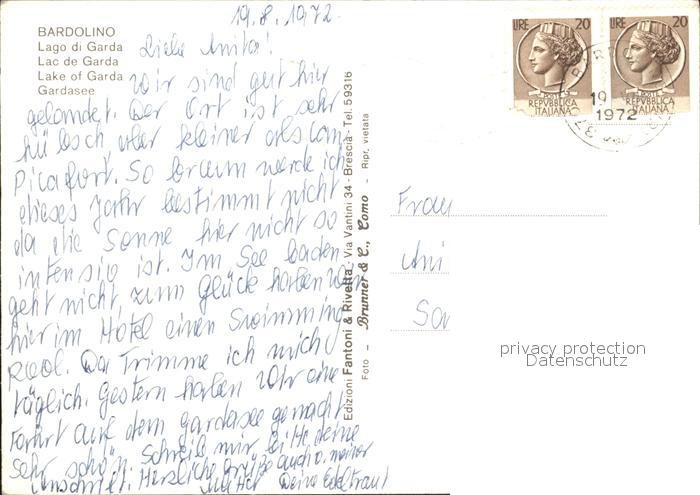 19.8.1972.
BARDOLINO
Lago di Garda
Lac de Garda
Lake of Garda
Gardasee
Liebe Anita!
Wir sind gut hier
gelandet. Der Ort ist sehr
hübsch aber kleiner als Can
Picafort. So braun werde ich
dieses Jahr bestimmt nicht
da die Sonne hier nicht so
intensiv ist. Im See baden
geht nicht, zum Glück haben wir
hier im Hotel einen Swimming
Pool. Da Trimme ich mich
täglich. Gestern haben wir eine
Fahrt auf dem Gardasee gemacht
sehr schön. Schreib mir bitte deine
Anschrift. Herzliche Grüße auch v. meiner
Mutter Deine Edeltraut
Edizioni Fantoni & Rivetta - Via Vantini 34 - Brescia - Tel. 59316
Foto - Brunner & C., Como - Ripr. vietata
LIRE 20
REPVBBLICA
ITALIANA
LIRE 20
REPVBBLICA
ITALIANA
19
1972
Frau
Ani
privacy protection
Datenschutz